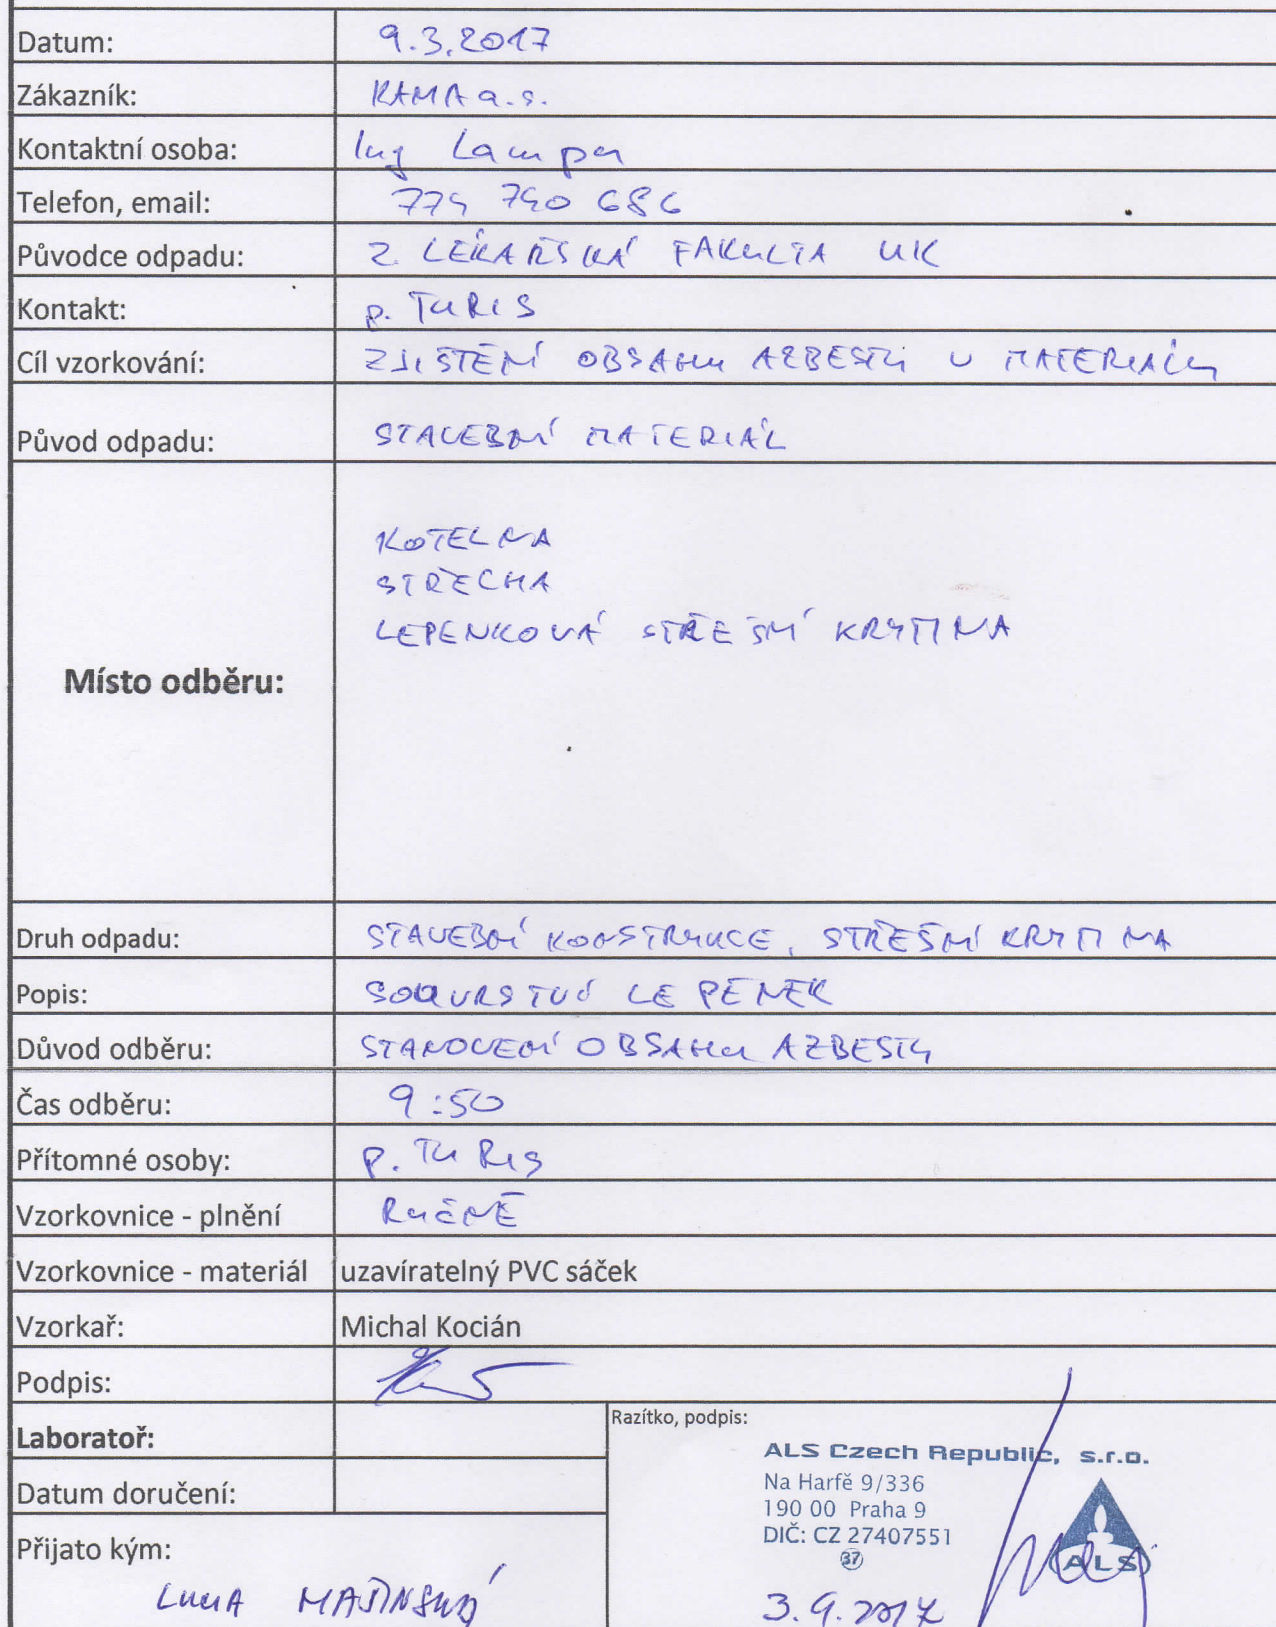 Datum: 9.3.2017
Zákazník: KAMA a.s.
Kontaktní osoba: Ing Lampa
Telefon, email: 774 740 686
Původce odpadu: 2. LÉKAŘSKÁ FAKULTA UK
Kontakt: p. TURIS
Cíl vzorkování: ZJIŠTĚNÍ OBSAHU AZBESTU V MATERIÁLU
Původ odpadu: STAVEBNÍ MATERIÁL
Místo odběru:
KOTELNA
STŘECHA
LEPENKOVÁ STŘEŠNÍ KRYTINA
Druh odpadu: STAVEBNÍ KONSTRUKCE, STŘEŠNÍ KRYTINA
Popis: SOUVRSTVÍ LEPENEK
Důvod odběru: STANOVENÍ OBSAHU AZBESTU
Čas odběru: 9:50
Přítomné osoby: p. TURIS
Vzorkovnice - plnění RUČNĚ
Vzorkovnice - materiál uzavíratelný PVC sáček
Vzorkař: Michal Kocián
Podpis:
Laboratoř:
Datum doručení:
Přijato kým:
Razítko, podpis:
ALS Czech Republic, s.r.o.
Na Harfě 9/336
190 00 Praha 9
DIČ: CZ 27407551
37
ALS
3.9.2017